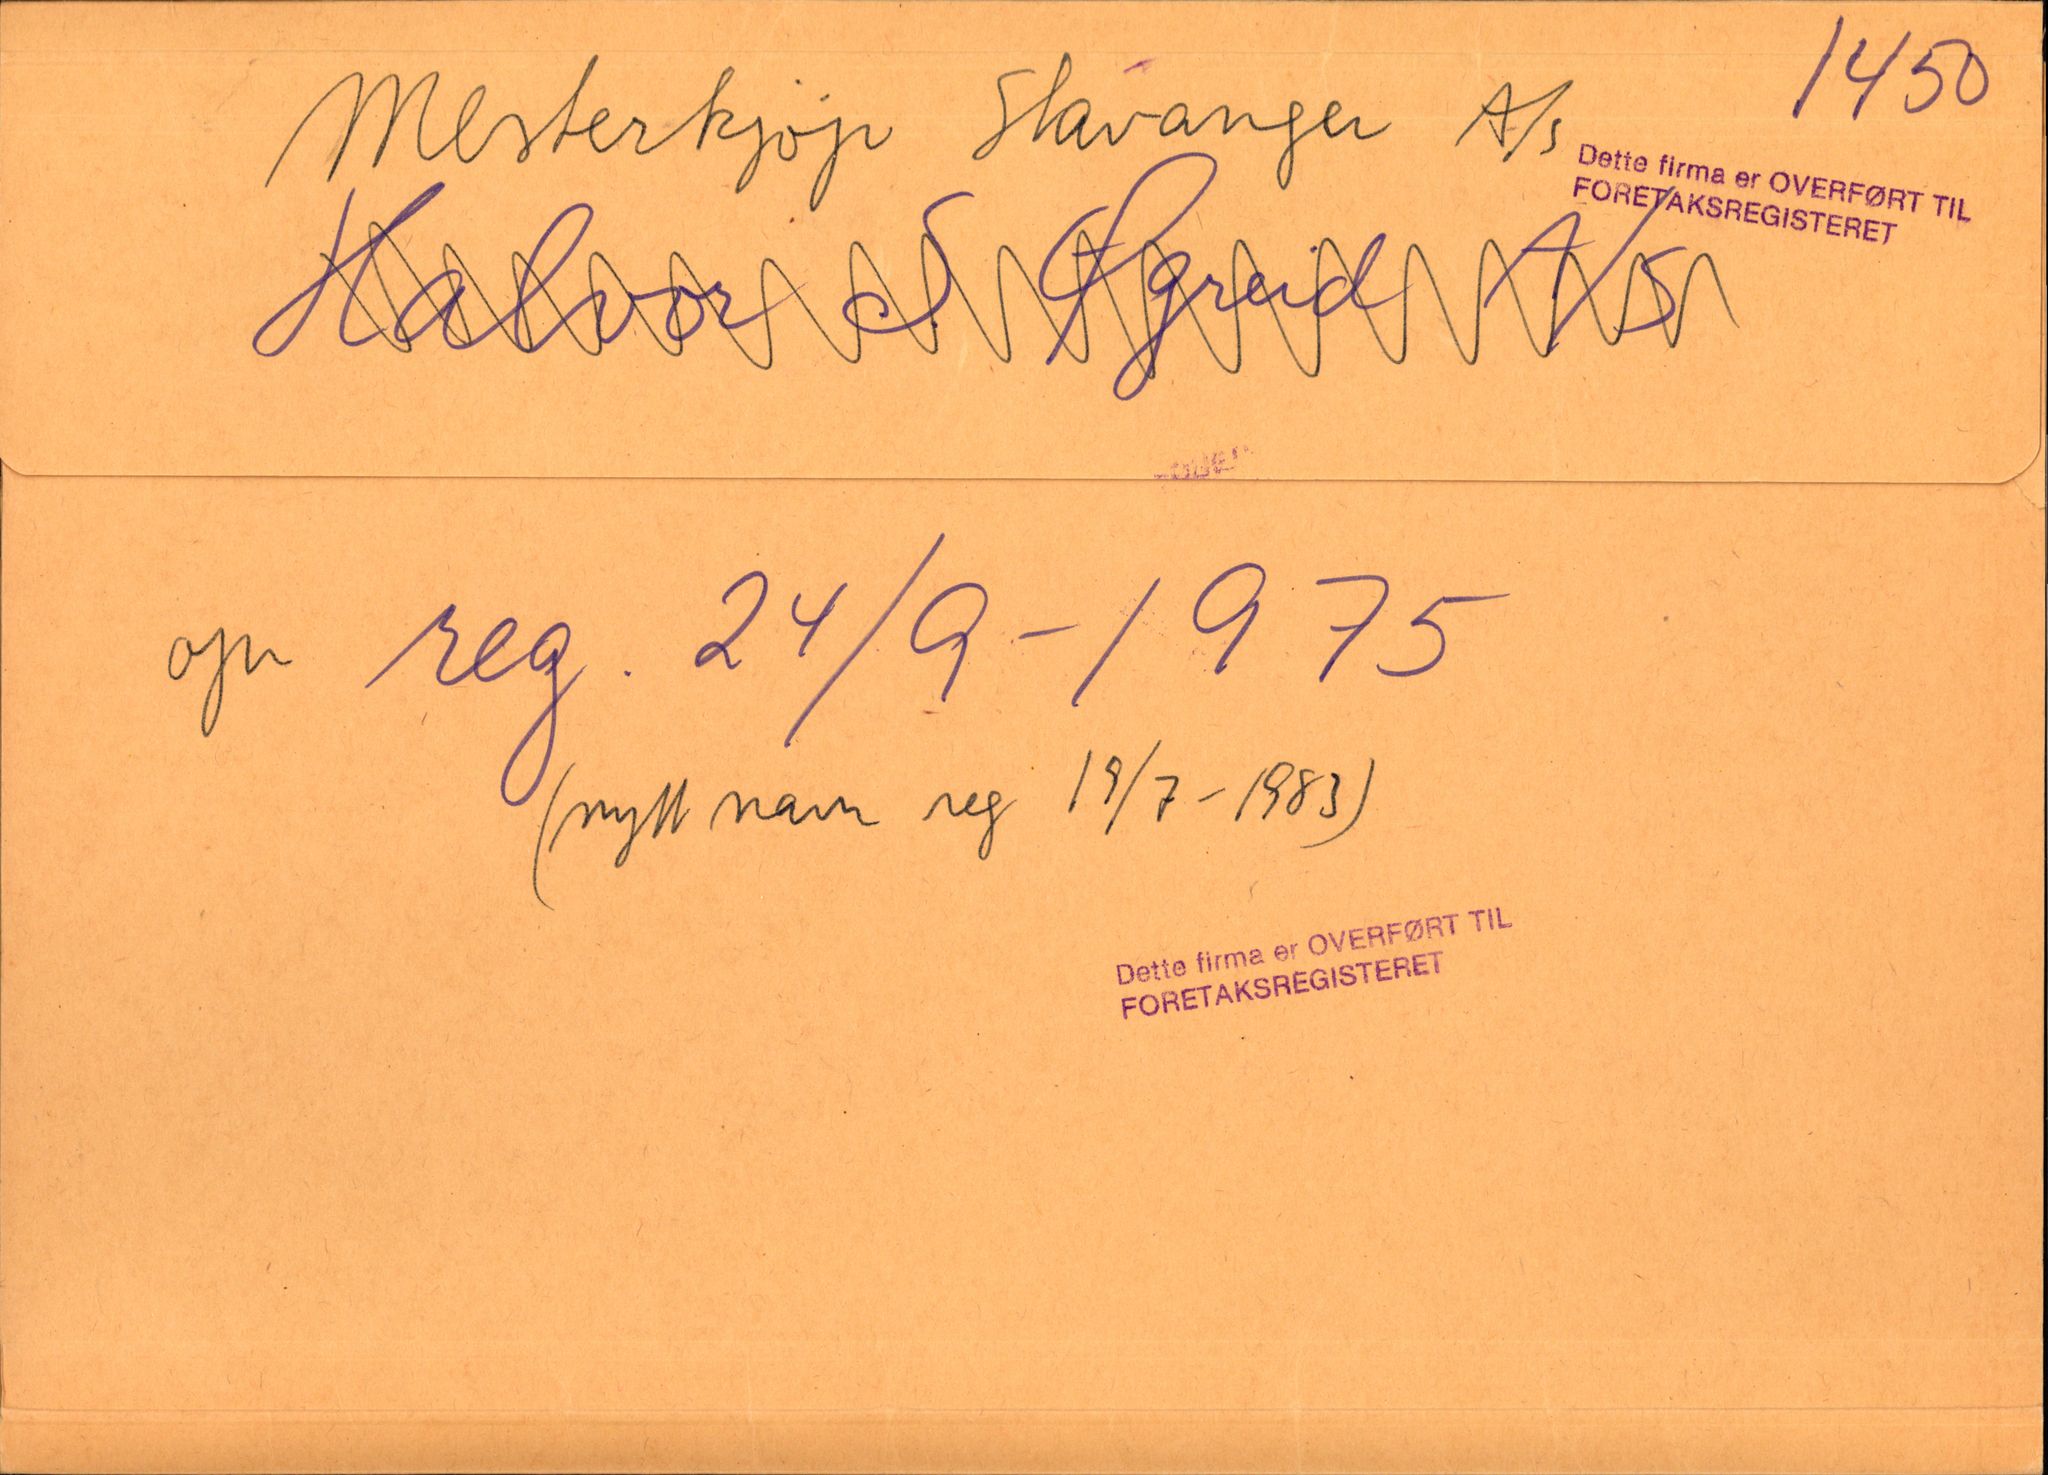 1450
Mesterkjøp Stavanger A/S
Dette firma er OVERFØRT TIL
FORETAKSREGISTERET
Halvor S. Øgreid A/S
opr reg. 24/9-1975
(nytt navn reg 19/7-1983)
Dette firma er OVERFØRT TIL
FORETAKSREGISTERET